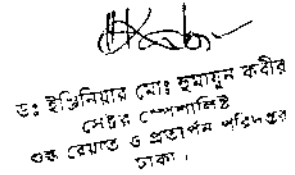 ড: ইঞ্জিনিয়ার মোঃ হুমায়ুন কবীর
সেক্টর স্পেশালিষ্ট
শুল্ক রেয়াত ও প্রত্যর্পন পরিদপ্তর
ঢাকা।